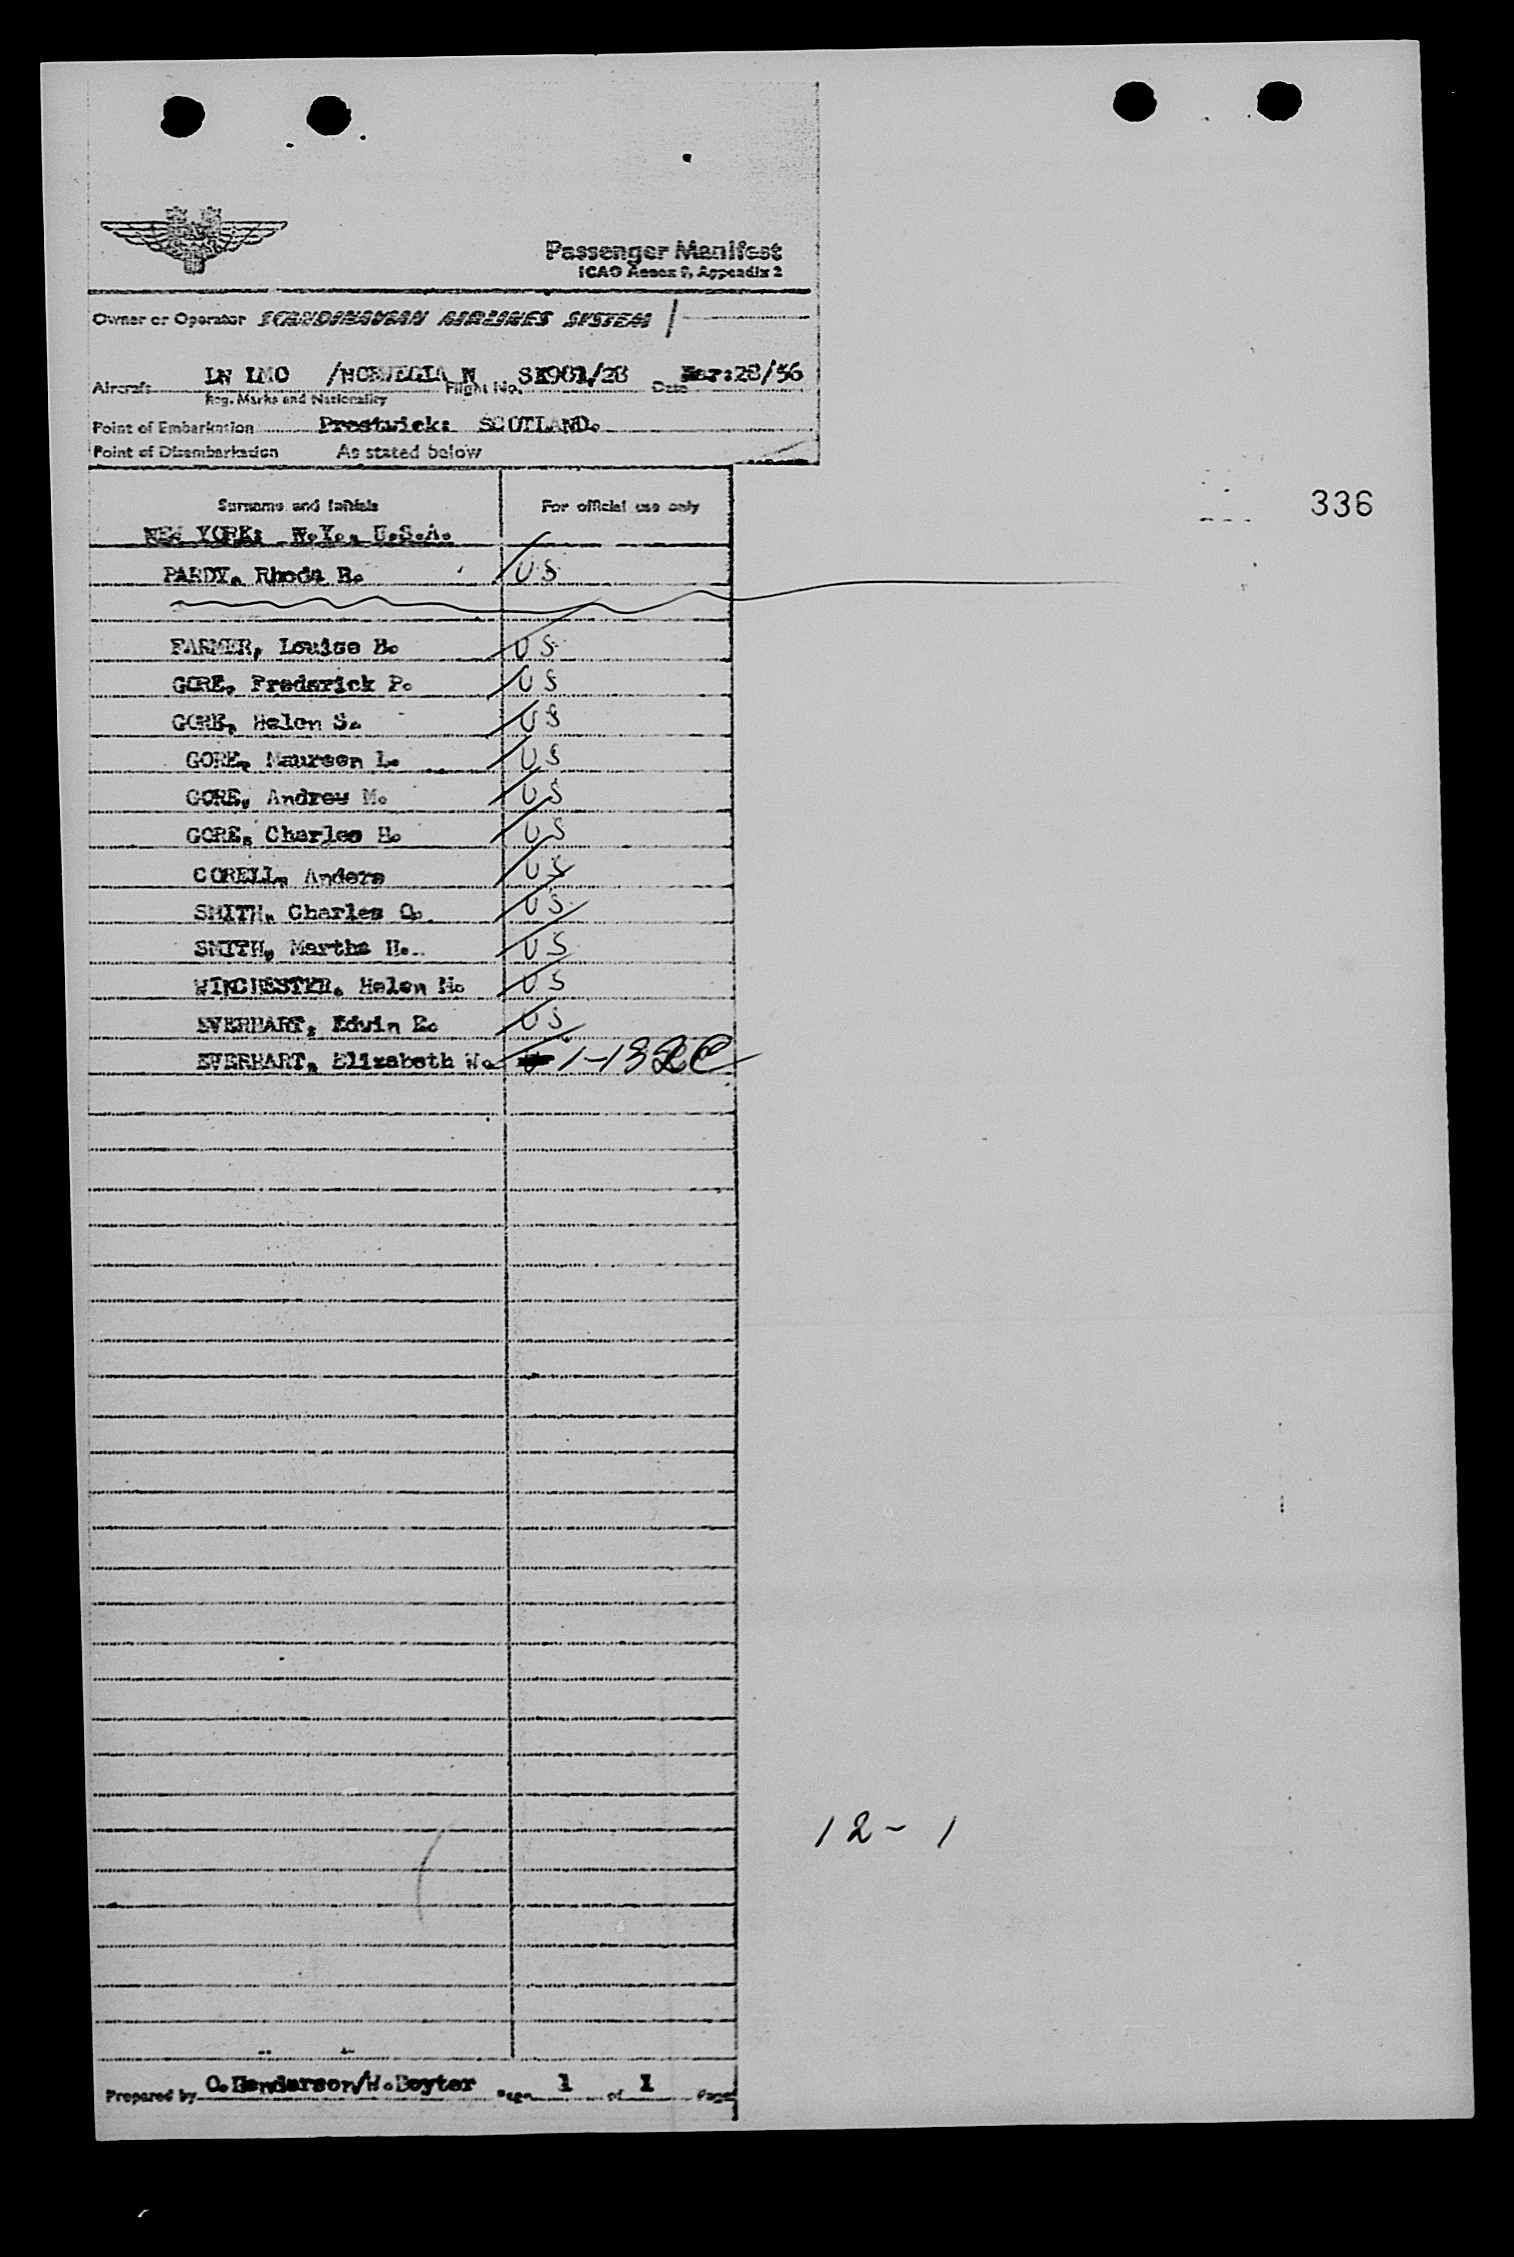 Passenger Manifest
ICAO Annex 9, Appendix 2
Owner or Operator SCANDINAVIAN AIRLINES SYSTEM
LN LMO /NORWEGIA N SK901/28 Mar:28/56
Aircraft Flight No. Date
Reg. Marks and Nationality
Point of Embarkation Prestwick: SCOTLAND.
Point of Disembarkation As stated below
Surname and Initials For official use only
336
NEW YORK: N.Y., U.S.A.
PARDY, Rhoda B. US
FARMER, Louise B. US
GORE, Frederick P. US
GORE, Helen S. US
GORE, Maureen L. US
GORE, Andrew M. US
GORE, Charles H. US
CORELL, Anders US
SMITH, Charles O. US
SMITH, Martha H. US
WINCHESTER, Helen M. US
EVERHART, Edwin E. US
EVERHART, Elizabeth W. 1-
12-1
Prepared by C.Henderson/W.Boyter Page 1 of 1 Page